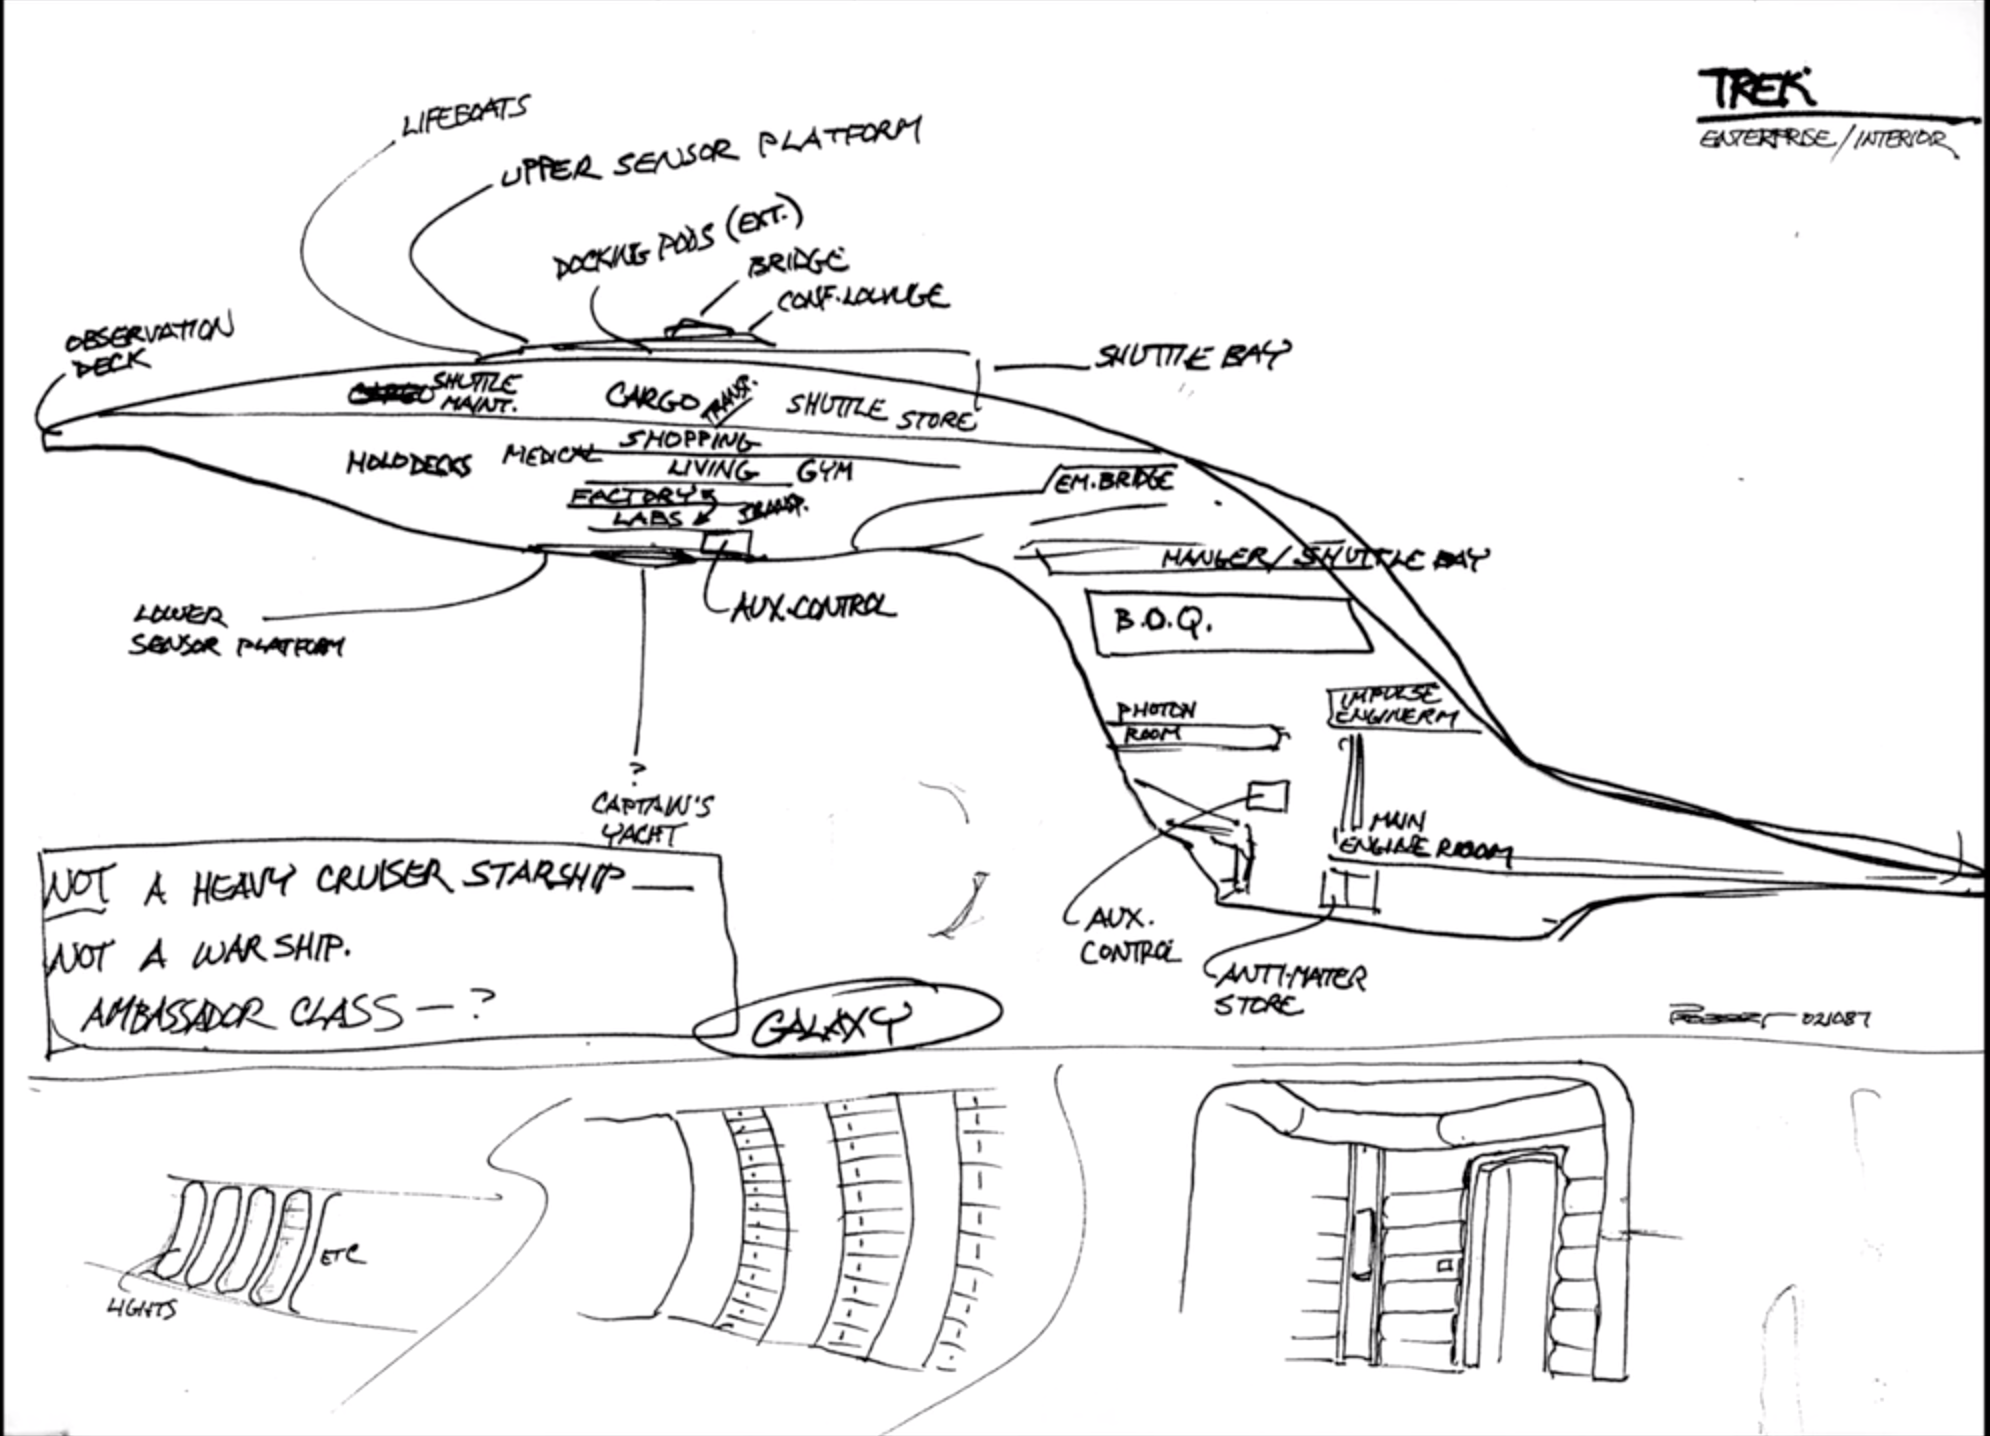 TREK
ENTERPRISE/INTERIOR
LIFEBOATS
UPPER SENSOR PLATFORM
DOCKING PODS (EXT.)
BRIDGE
CONF. LOUNGE
OBSERVATION
DECK
SHUTTLE BAY
SHUTTLE
MAINT.
CARGO
TRANSP.
SHUTTLE STORE
HOLODECKS
MEDICAL
SHOPPING
LIVING
GYM
FACTORY
LABS
TRANSP.
EM. BRIDGE
HANGER/SHUTTLE BAY
LOWER
SENSOR PLATFORM
AUX. CONTROL
B.O.Q.
PHOTON
ROOM
IMPULSE
ENGINE RM
?
CAPTAIN'S
YACHT
MAIN
ENGINE ROOM
AUX.
CONTROL
ANTI-MATER
STORE
NOT A HEAVY CRUISER STARSHIP —
NOT A WARSHIP.
AMBASSADOR CLASS — ?
GALAXY
021087
ETC
LIGHTS